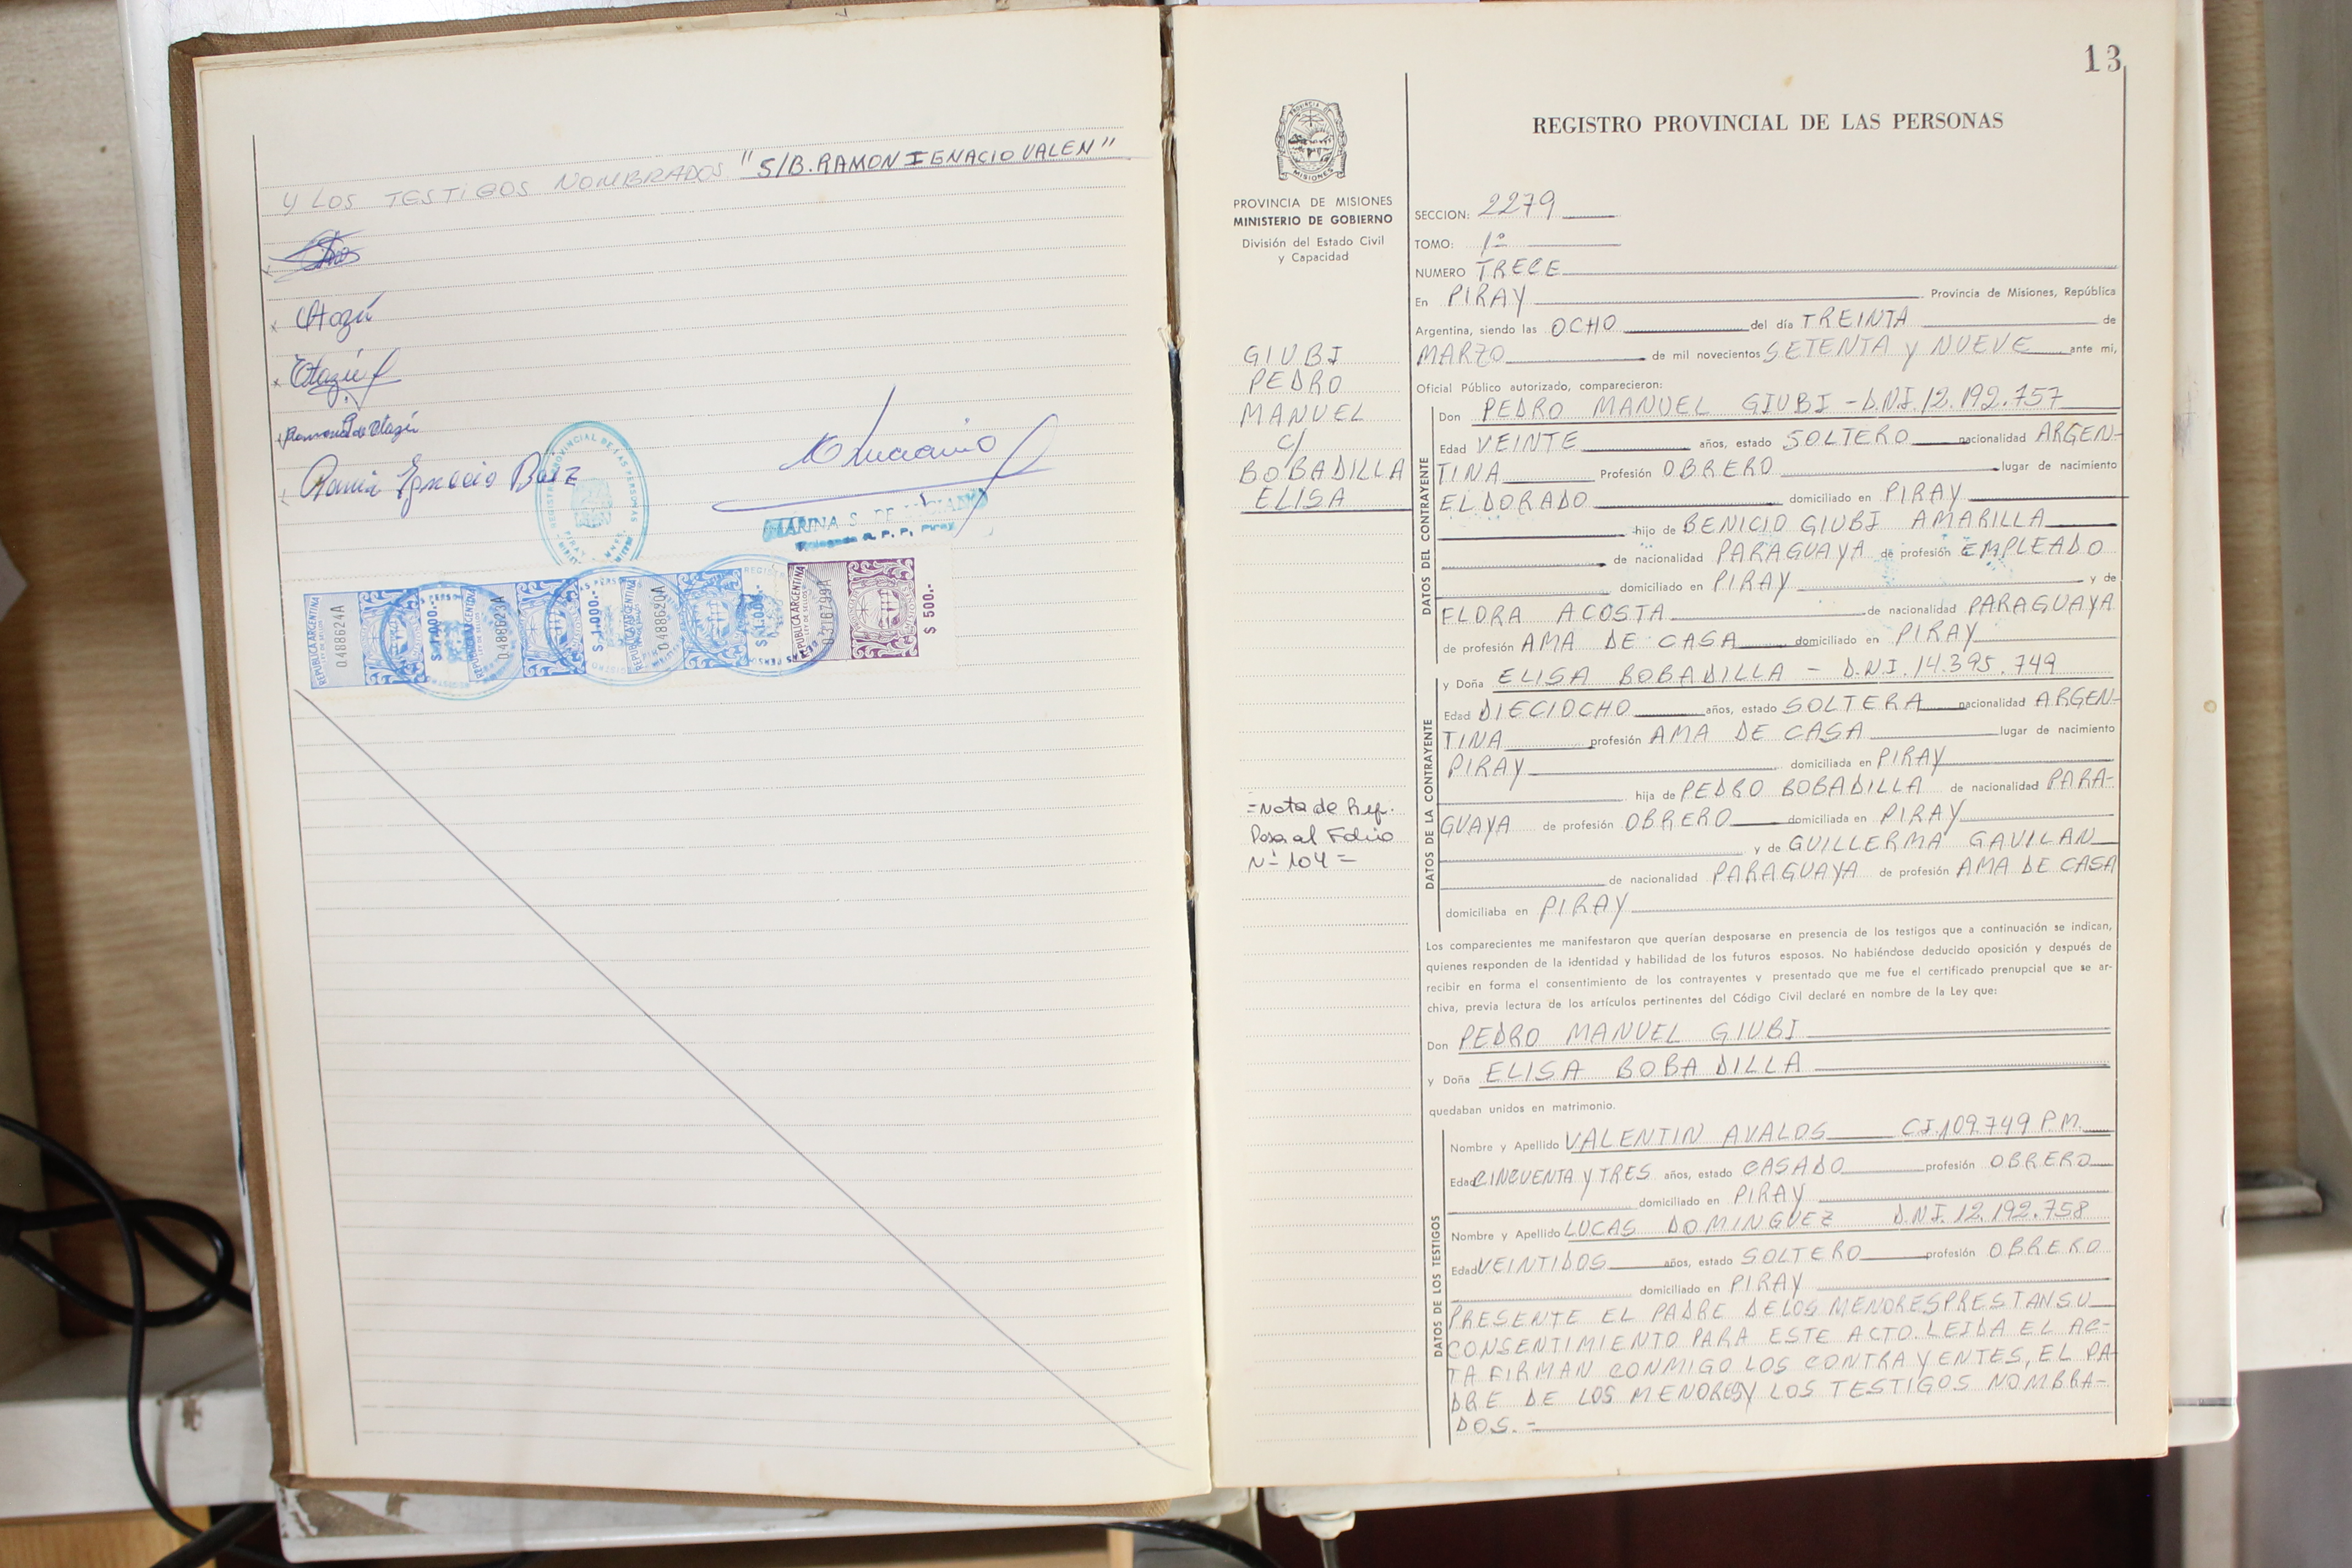 Y LOS TESTIGOS NOMBRADOS "S/B. RAMON IGNACIO VALEN"
Otazú
Otazú
Ramona de Otazú
Ramón Ignacio Baez
REGISTRO PROVINCIAL DE LAS PERSONAS
PIRAY
MARINA S. DE
R. P. P. Piray
REPUBLICA ARGENTINA
LEY DE SELLOS
0488624A
$ 1.000.-
REPUBLICA ARGENTINA
0488623A
$ 1.000.-
REPUBLICA ARGENTINA
0488620A
$ 1.000.-
REPUBLICA ARGENTINA
LEY DE SELLOS
$ 500.-
13
PROVINCIA DE
MISIONES
PROVINCIA DE MISIONES
MINISTERIO DE GOBIERNO
División del Estado Civil
y Capacidad
GIUBI
PEDRO
MANUEL
C/
BOBADILLA
ELISA
=Nota de Ref.
Pasa al Folio
Nº 104=
REGISTRO PROVINCIAL DE LAS PERSONAS
SECCION: 2279
TOMO: 1º
NUMERO TRECE
En PIRAY Provincia de Misiones, República
Argentina, siendo las OCHO del día TREINTA de
MARZO de mil novecientos SETENTA Y NUEVE ante mi,
Oficial Público autorizado, comparecieron:
DATOS DEL CONTRAYENTE
Don PEDRO MANUEL GIUBI - D.N.I. 12.192.757
Edad VEINTE años, estado SOLTERO nacionalidad ARGEN-
TINA Profesión OBRERO lugar de nacimiento
ELDORADO domiciliado en PIRAY
hijo de BENICIO GIUBI AMARILLA
de nacionalidad PARAGUAYA de profesión EMPLEADO
domiciliado en PIRAY y de
FLORA ACOSTA de nacionalidad PARAGUAYA
de profesión AMA DE CASA domiciliado en PIRAY
DATOS DE LA CONTRAYENTE
y Doña ELISA BOBADILLA - D.N.I. 14.395.749
Edad DIECIOCHO años, estado SOLTERA nacionalidad ARGEN-
TINA profesión AMA DE CASA lugar de nacimiento
PIRAY domiciliada en PIRAY
hija de PEDRO BOBADILLA de nacionalidad PARA-
GUAYA de profesión OBRERO domiciliada en PIRAY
y de GUILLERMA GAVILAN
de nacionalidad PARAGUAYA de profesión AMA DE CASA
domiciliaba en PIRAY
Los comparecientes me manifestaron que querían desposarse en presencia de los testigos que a continuación se indican,
quienes responden de la identidad y habilidad de los futuros esposos. No habiéndose deducido oposición y después de
recibir en forma el consentimiento de los contrayentes y presentado que me fue el certificado prenupcial que se ar-
chiva, previa lectura de los artículos pertinentes del Código Civil declaré en nombre de la Ley que:
Don PEDRO MANUEL GIUBI
y Doña ELISA BOBADILLA
quedaban unidos en matrimonio.
DATOS DE LOS TESTIGOS
Nombre y Apellido VALENTIN AVALOS C.I. 109.749 P.M.
Edad CINCUENTA Y TRES años, estado CASADO profesión OBRERO
domiciliado en PIRAY
Nombre y Apellido LUCAS DOMINGUEZ D.N.I. 12.192.758
Edad VEINTIDOS años, estado SOLTERO profesión OBRERO
domiciliado en PIRAY
PRESENTE EL PADRE DE LOS MENORES PRESTAN SU
CONSENTIMIENTO PARA ESTE ACTO. LEIDA EL AC-
TA FIRMAN CONMIGO LOS CONTRAYENTES, EL PA-
DRE DE LOS MENORES Y LOS TESTIGOS NOMBRA-
DOS.-